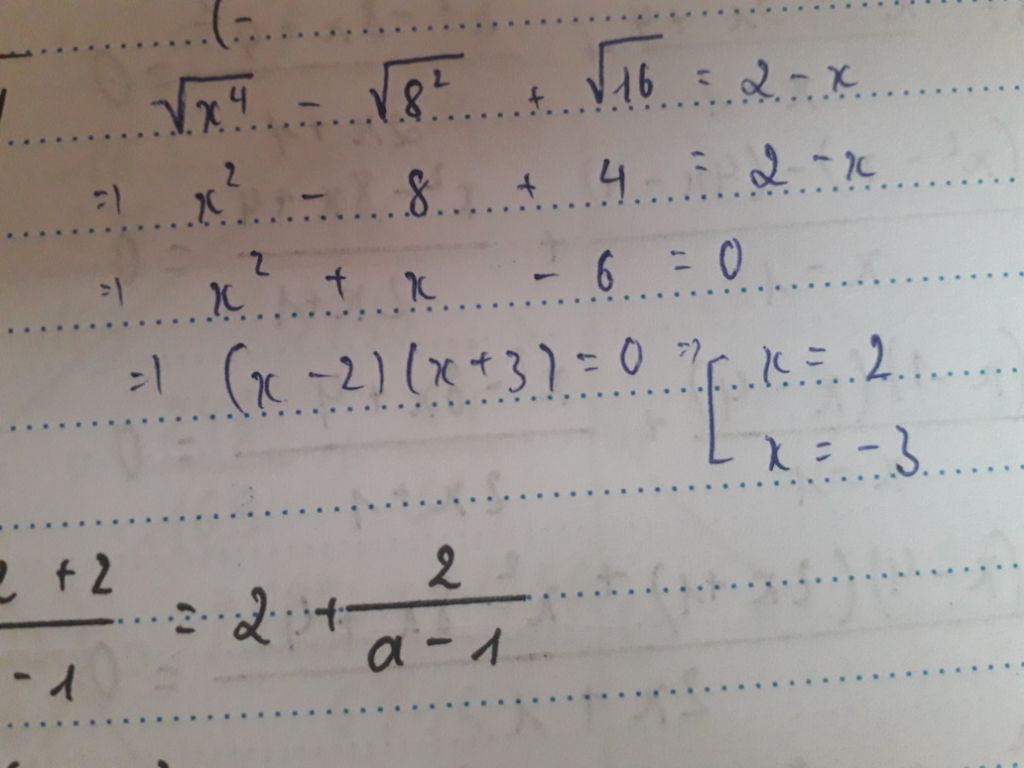 (-
√x⁴ - √8² + √16 = 2 - x
=> x² - 8 + 4 = 2 - x
=> x² + x - 6 = 0
=> (x - 2)(x + 3) = 0 => [ x = 2
x = -3
+ 2 / - 1 = 2 + 2 / a - 1